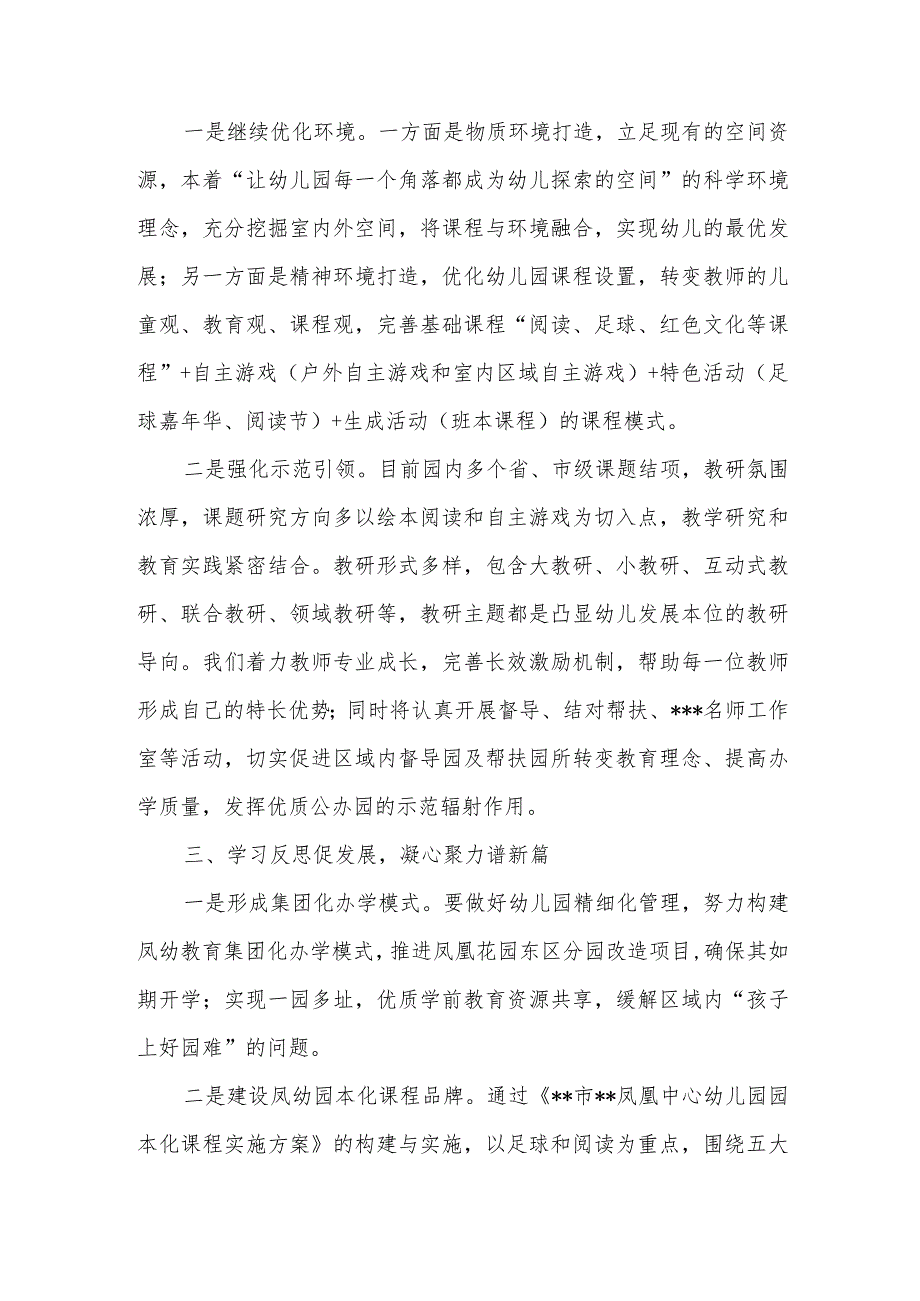 一是继续优化环境。一方面是物质环境打造，立足现有的空间资
源，本着“让幼儿园每一个角落都成为幼儿探索的空间”的科学环境
理念，充分挖掘室内外空间，将课程与环境融合，实现幼儿的最优发
展；另一方面是精神环境打造，优化幼儿园课程设置，转变教师的儿
童观、教育观、课程观，完善基础课程“阅读、足球、红色文化等课
程”+自主游戏（户外自主游戏和室内区域自主游戏）+特色活动（足
球嘉年华、阅读节）+生成活动（班本课程）的课程模式。
二是强化示范引领。目前园内多个省、市级课题结项，教研氛围
浓厚，课题研究方向多以绘本阅读和自主游戏为切入点，教学研究和
教育实践紧密结合。教研形式多样，包含大教研、小教研、互动式教
研、联合教研、领域教研等，教研主题都是凸显幼儿发展本位的教研
导向。我们着力教师专业成长，完善长效激励机制，帮助每一位教师
形成自己的特长优势；同时将认真开展督导、结对帮扶、***名师工作
室等活动，切实促进区域内督导园及帮扶园所转变教育理念、提高办
学质量，发挥优质公办园的示范辐射作用。
三、学习反思促发展，凝心聚力谱新篇
一是形成集团化办学模式。要做好幼儿园精细化管理，努力构建
凤幼教育集团化办学模式，推进凤凰花园东区分园改造项目,确保其如
期开学；实现一园多址，优质学前教育资源共享，缓解区域内“孩子
上好园难”的问题。
二是建设凤幼园本化课程品牌。通过《**市**凤凰中心幼儿园园
本化课程实施方案》的构建与实施，以足球和阅读为重点，围绕五大